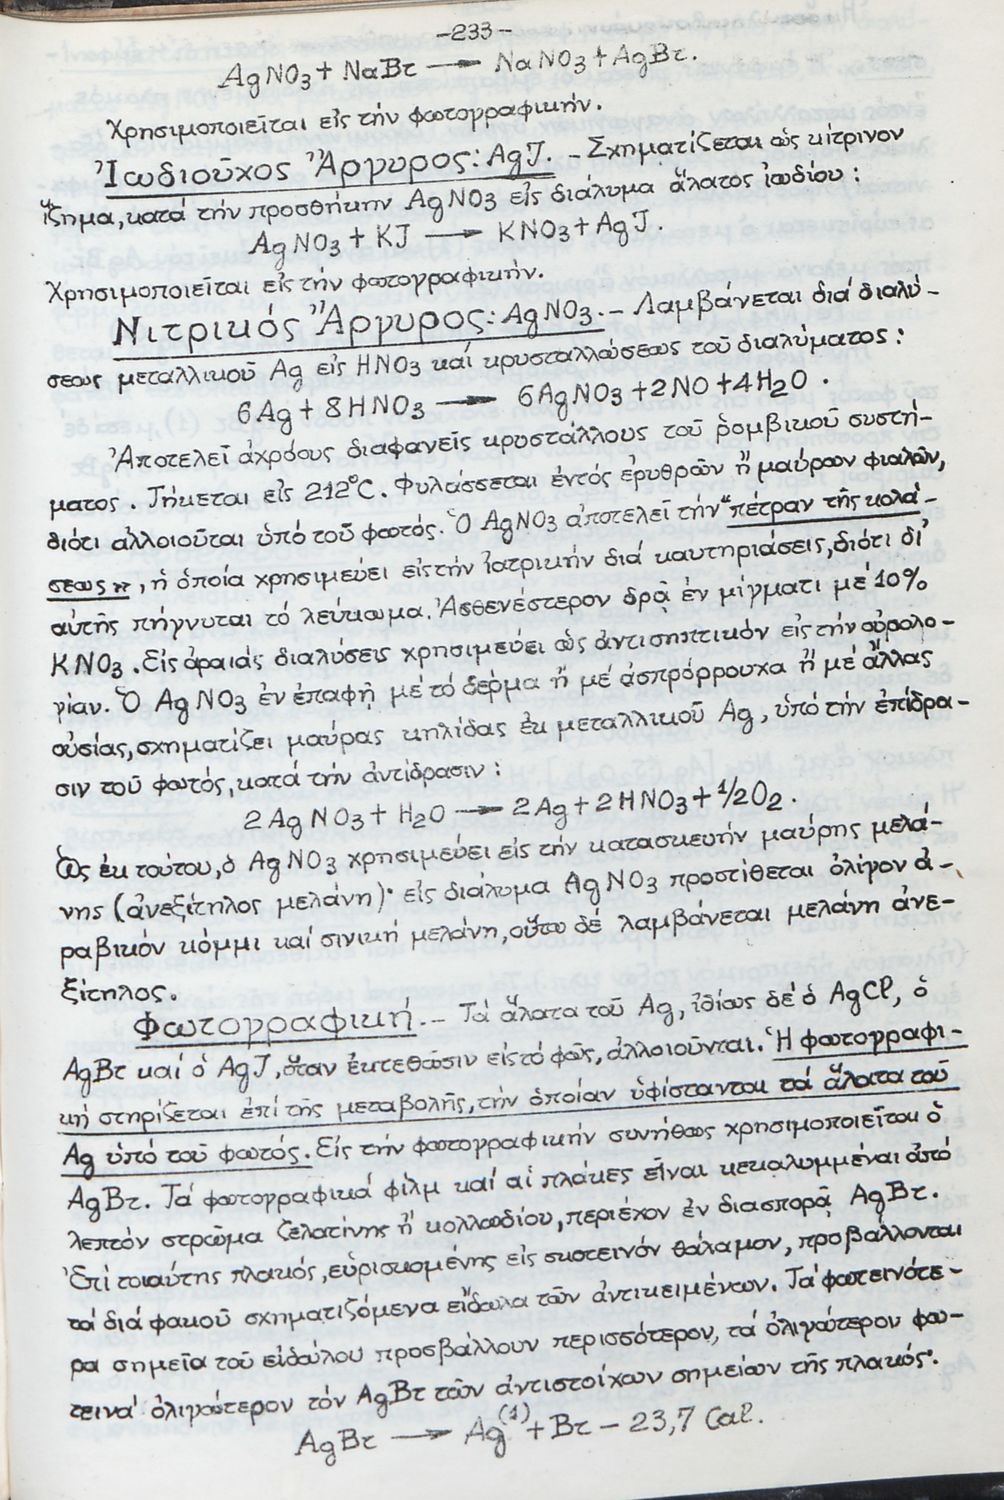 -233-
AgNO3 + NaBr → NaNO3 + AgBr.
Χρησιμοποιεῖται εἰς τήν φωτογραφικήν.
Ἰωδιοῦχος Ἄργυρος: AgJ. – Σχηματίζεται ὡς κίτρινον
ἵζημα, κατά τήν προσθήκην AgNO3 εἰς διάλυμα ἅλατος ἰωδίου:
AgNO3 + KJ → KNO3 + AgJ.
Χρησιμοποιεῖται εἰς τήν φωτογραφικήν.
Νιτρικός Ἄργυρος: AgNO3. – Λαμβάνεται διά διαλύ-
σεως μεταλλικοῦ Ag εἰς HNO3 καί κρυσταλλώσεως τοῦ διαλύματος:
6Ag + 8HNO3 → 6AgNO3 + 2NO + 4H2O.
Ἀποτελεῖ ἀχρόους διαφανεῖς κρυστάλλους τοῦ ῥομβικοῦ συστή-
ματος. Τήκεται εἰς 212°C. Φυλάσσεται ἐντός ἐρυθρῶν ἤ μαύρων φιαλῶν,
διότι ἀλλοιοῦται ὑπό τοῦ φωτός. Ὁ AgNO3 ἀποτελεῖ τήν "πέτραν τῆς κολά-
σεως», ἡ ὁποία χρησιμεύει εἰς τήν ἰατρικήν διά καυτηριάσεις, διότι δι'
αὐτῆς πήγνυται τό λεύκωμα. Ἀσθενέστερον δρᾷ ἐν μίγματι μέ 10%
KNO3. Εἰς ἀραιάς διαλύσεις χρησιμεύει ὡς ἀντισηπτικόν εἰς τήν οὐρολο-
γίαν. Ὁ AgNO3 ἐν ἐπαφῇ μέ τό δέρμα ἤ μέ ἀσπρόρρουχα ἤ μέ ἄλλας
οὐσίας, σχηματίζει μαύρας κηλίδας ἐκ μεταλλικοῦ Ag, ὑπό τήν ἐπίδρα-
σιν τοῦ φωτός, κατά τήν ἀντίδρασιν:
2AgNO3 + H2O → 2Ag + 2HNO3 + 1/2O2.
Ὡς ἐκ τούτου, ὁ AgNO3 χρησιμεύει εἰς τήν κατασκευήν μαύρης μελά-
νης (ἀνεξίτηλος μελάνη)· εἰς διάλυμα AgNO3 προστίθεται ὀλίγον ἀ-
ραβικόν κόμμι καί σινική μελάνη, οὕτω δέ λαμβάνεται μελάνη ἀνε-
ξίτηλος.
Φωτογραφική. – Τά ἅλατα τοῦ Ag, ἰδίως δέ ὁ AgCl, ὁ
AgBr καί ὁ AgJ, ὅταν ἐκτεθῶσιν εἰς τό φῶς, ἀλλοιοῦνται. Ἡ φωτογραφι-
κή στηρίζεται ἐπί τῆς μεταβολῆς, τήν ὁποίαν ὑφίστανται τά ἅλατα τοῦ
Ag ὑπό τοῦ φωτός. Εἰς τήν φωτογραφικήν συνήθως χρησιμοποιεῖται ὁ
AgBr. Τά φωτογραφικά φίλμ καί αἱ πλάκες εἶναι κεκαλυμμέναι ἀπό
λεπτόν στρῶμα ζελατίνης ἤ κολλωδίου, περιέχον ἐν διασπορᾷ AgBr.
Ἐπί τοιαύτης πλακός, εὑρισκομένης εἰς σκοτεινόν θάλαμον, προβάλλονται
τά διά φακοῦ σχηματιζόμενα εἴδωλα τῶν ἀντικειμένων. Τά φωτεινότε-
ρα σημεῖα τοῦ εἰδώλου προσβάλλουν περισσότερον, τά ὀλιγώτερον φω-
τεινά ὀλιγώτερον τόν AgBr τῶν ἀντιστοίχων σημείων τῆς πλακός:
AgBr → Ag(1) + Br – 23,7 Cal.